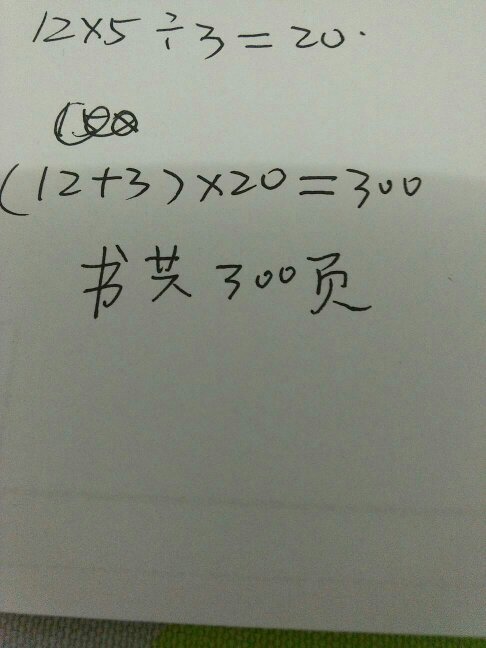 12×5÷3=20.
(12+3)×20=300
书共300页